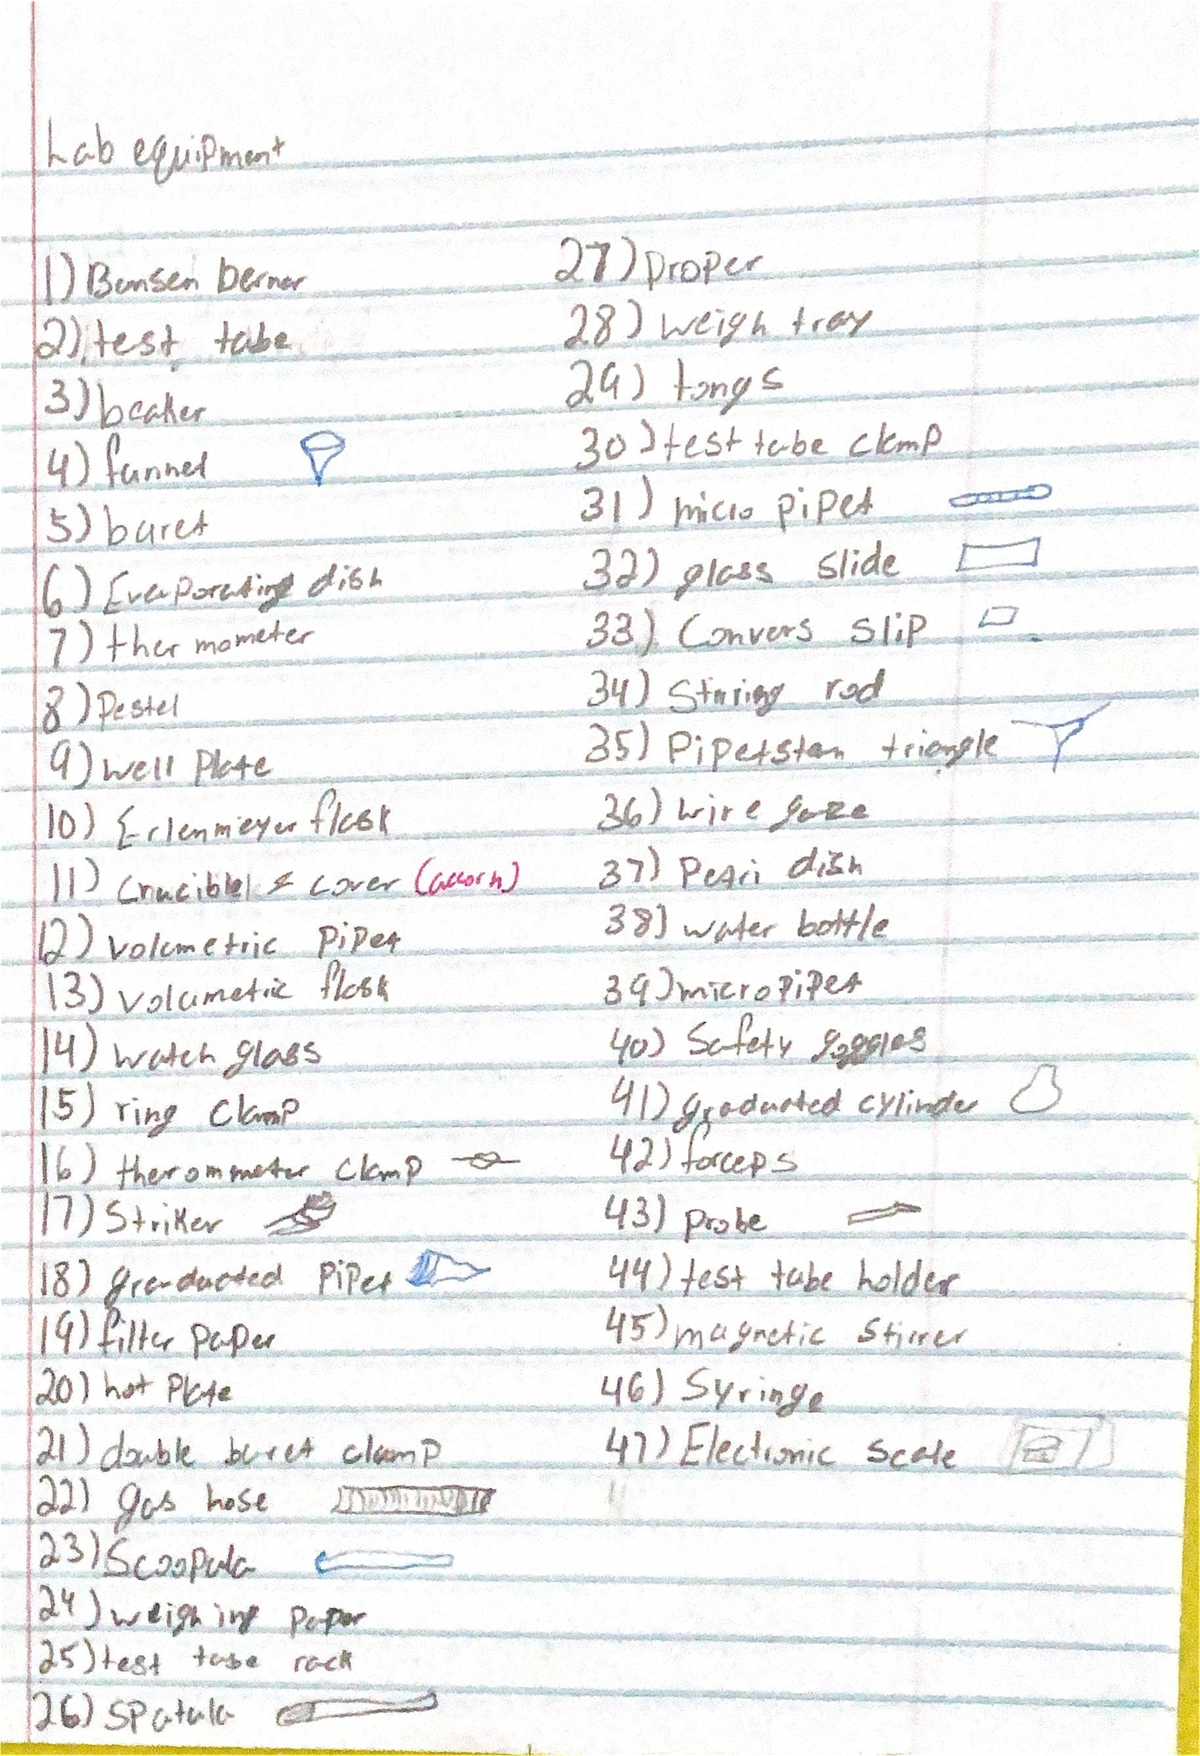 Lab equipment
1) Bunsen berner
2) test tube
3) beaker
4) funnel
5) buret
6) Evaporating dish
7) thermometer
8) Pestel
9) well Plate
10) Erlenmeyer flask
11) Crucible & cover (acorn)
12) volumetric pipet
13) volumetric flask
14) watch glass
15) ring clamp
16) therommeter clamp
17) Striker
18) graducted pipet
19) filter paper
20) hot Plate
21) double buret clamp
22) gas hose
23) Scoopula
24) weighing paper
25) test tube rack
26) Spatula
27) proper
28) weigh tray
29) tongs
30) test tube clamp
31) micro pipet
32) glass slide
33) Convers slip
34) Stirring rod
35) Pipetstem triangle
36) wire gaze
37) Petri dish
38) water bottle
39) micropipet
40) Safety goggles
41) graducted cylinder
42) forceps
43) probe
44) test tube holder
45) magnetic stirrer
46) Syringe
47) Electronic scale